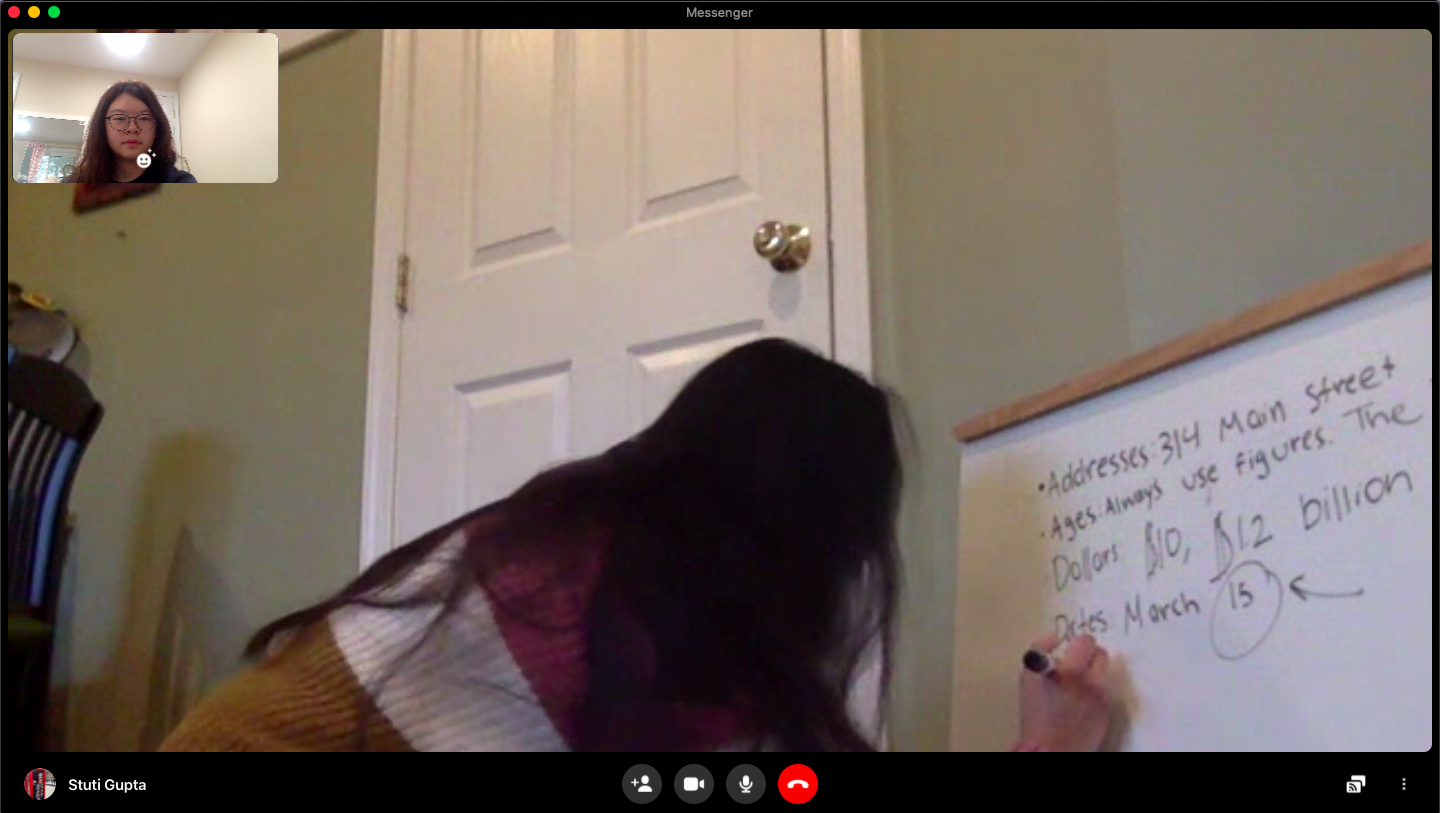 Messenger
• Addresses: 314 Main Street
• Ages: Always use figures. The
Dollars $10, $12 billion
Dates March 15
Stuti Gupta